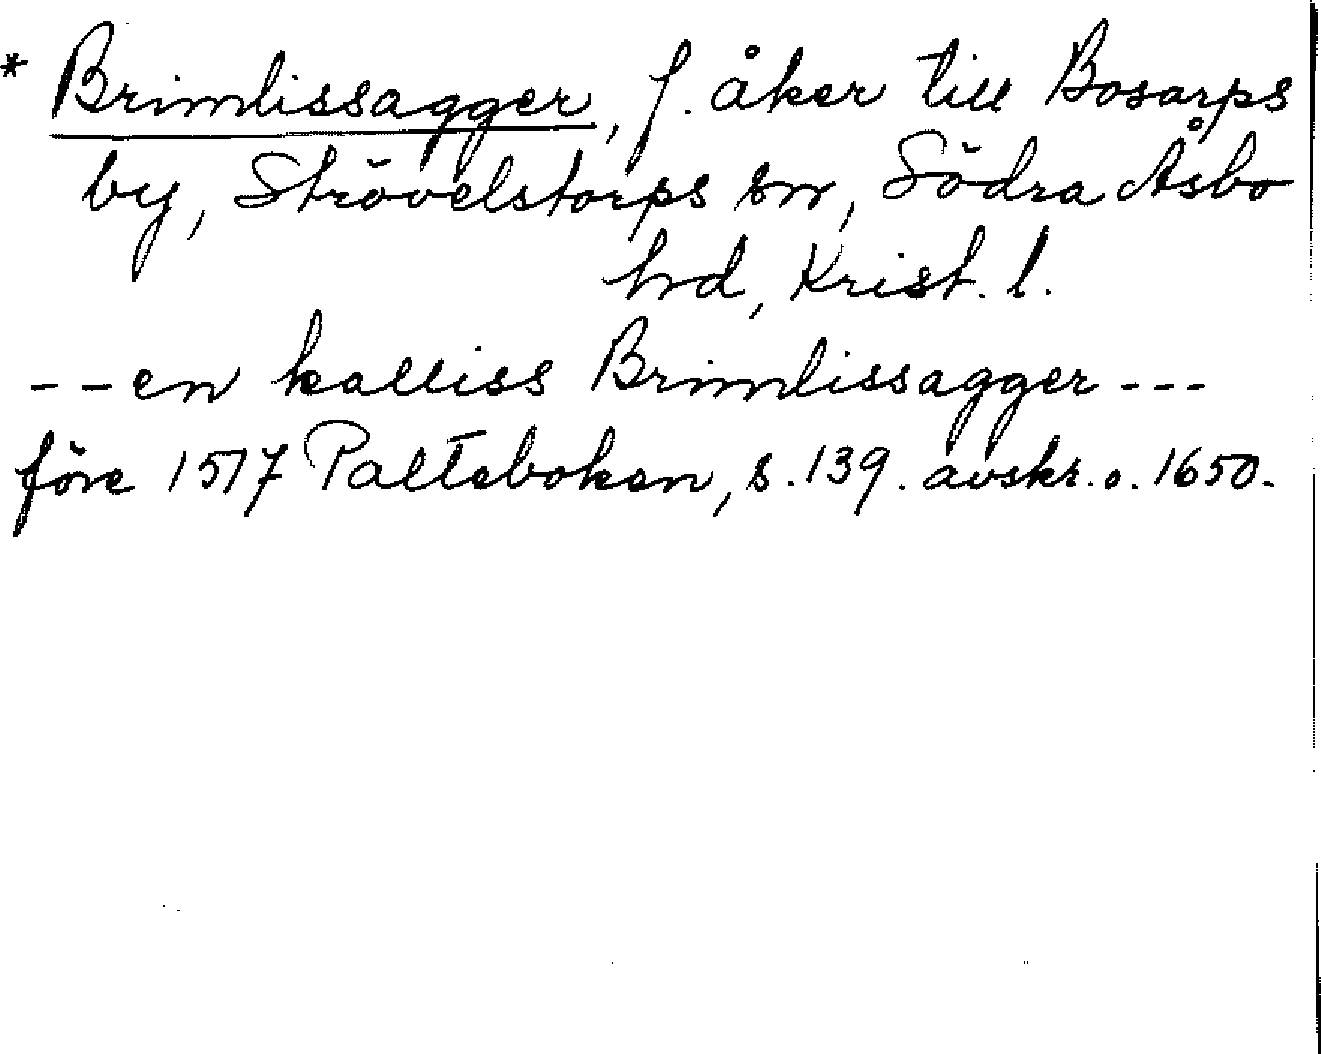 * Brimlissagger, f. åker till Bosarps
by, Strövelstorps sn, Södra Åsbo
hd, Krist. l.
--en kalliss Brimlissagger---
före 1517 Palteboken, s. 139. avskr. o. 1650.